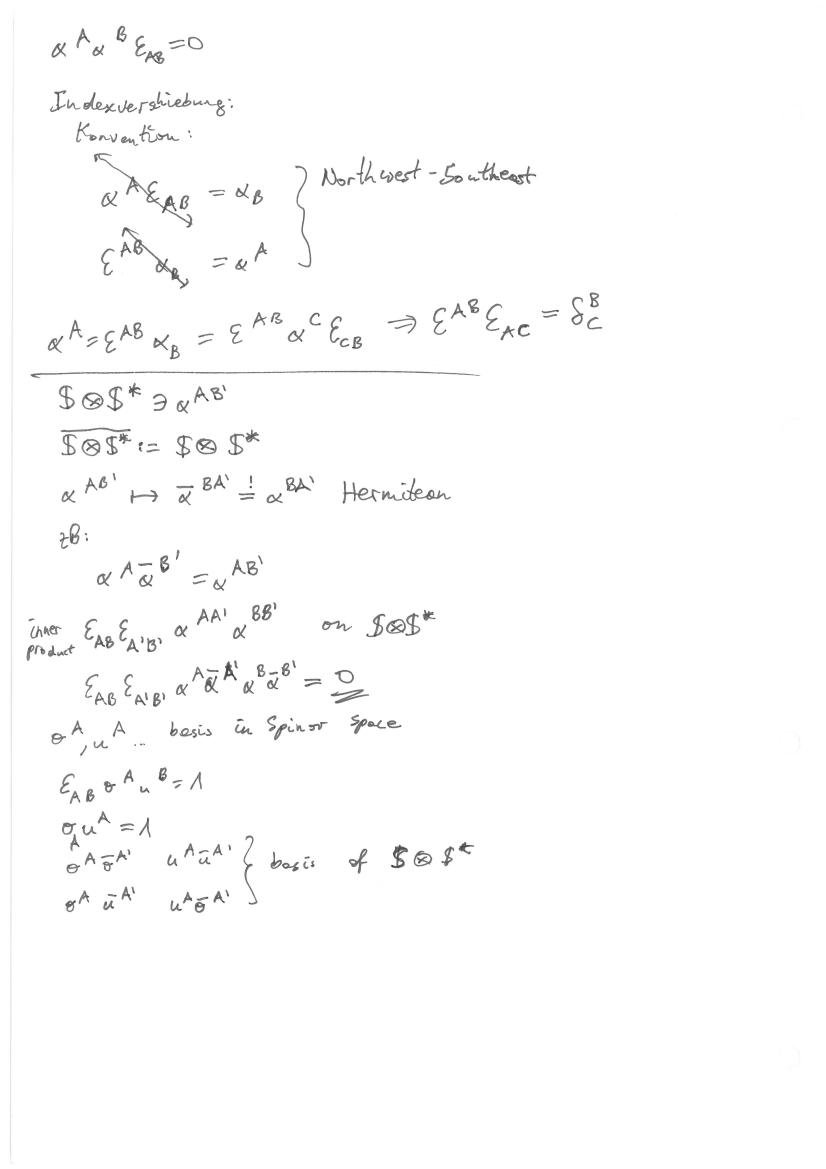 α^A α^B ε_AB = 0
Indexvershiebung:
Konvention:
α^A ε_AB = α_B } Northwest - Southeast
ε^AB α_B = α^A
α^A = ε^AB α_B = ε^AB α^C ε_CB ⇒ ε^AB ε_AC = δ^B_C
$⊗$* ∋ α^AB'
\overline{$⊗$*} := $⊗$*
α^AB' ↦ ᾱ^BA' =! α^BA' Hermitean
zB:
α^A ᾱ^B' = α^AB'
inner product ε_AB ε_A'B' α^AA' α^BB' on $⊗$*
ε_AB ε_A'B' α^A ᾱ^A' α^B ᾱ^B' = 0
o^A, u^A ... basis in Spinor Space
ε_AB o^A u^B = 1
o_A u^A = 1
o^A ō^A' u^A ū^A' } basis of $⊗$*
o^A ū^A' u^A ō^A'